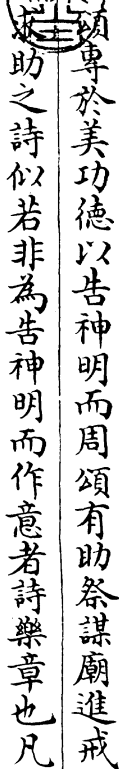 頌專於美功德以告神明而周頌有助祭謀廟進戒
求助之詩似若非為告神明而作意者詩樂章也凡